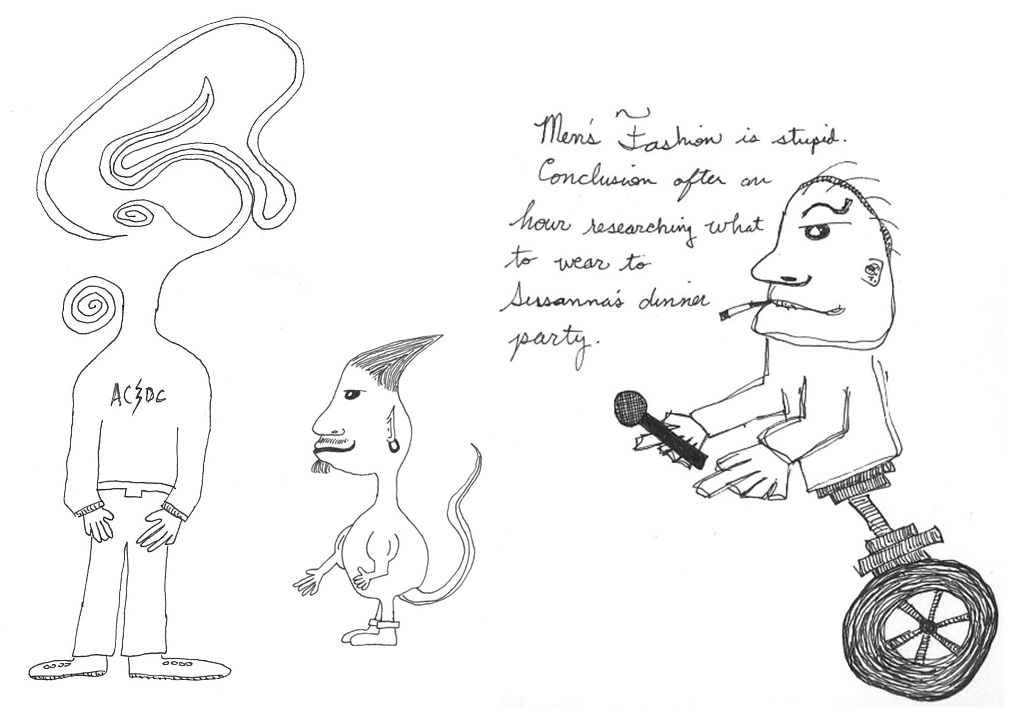 Men's Fashion is stupid.
Conclusion after an
hour researching what
to wear to
Susanna's dinner
party.
AC⚡DC